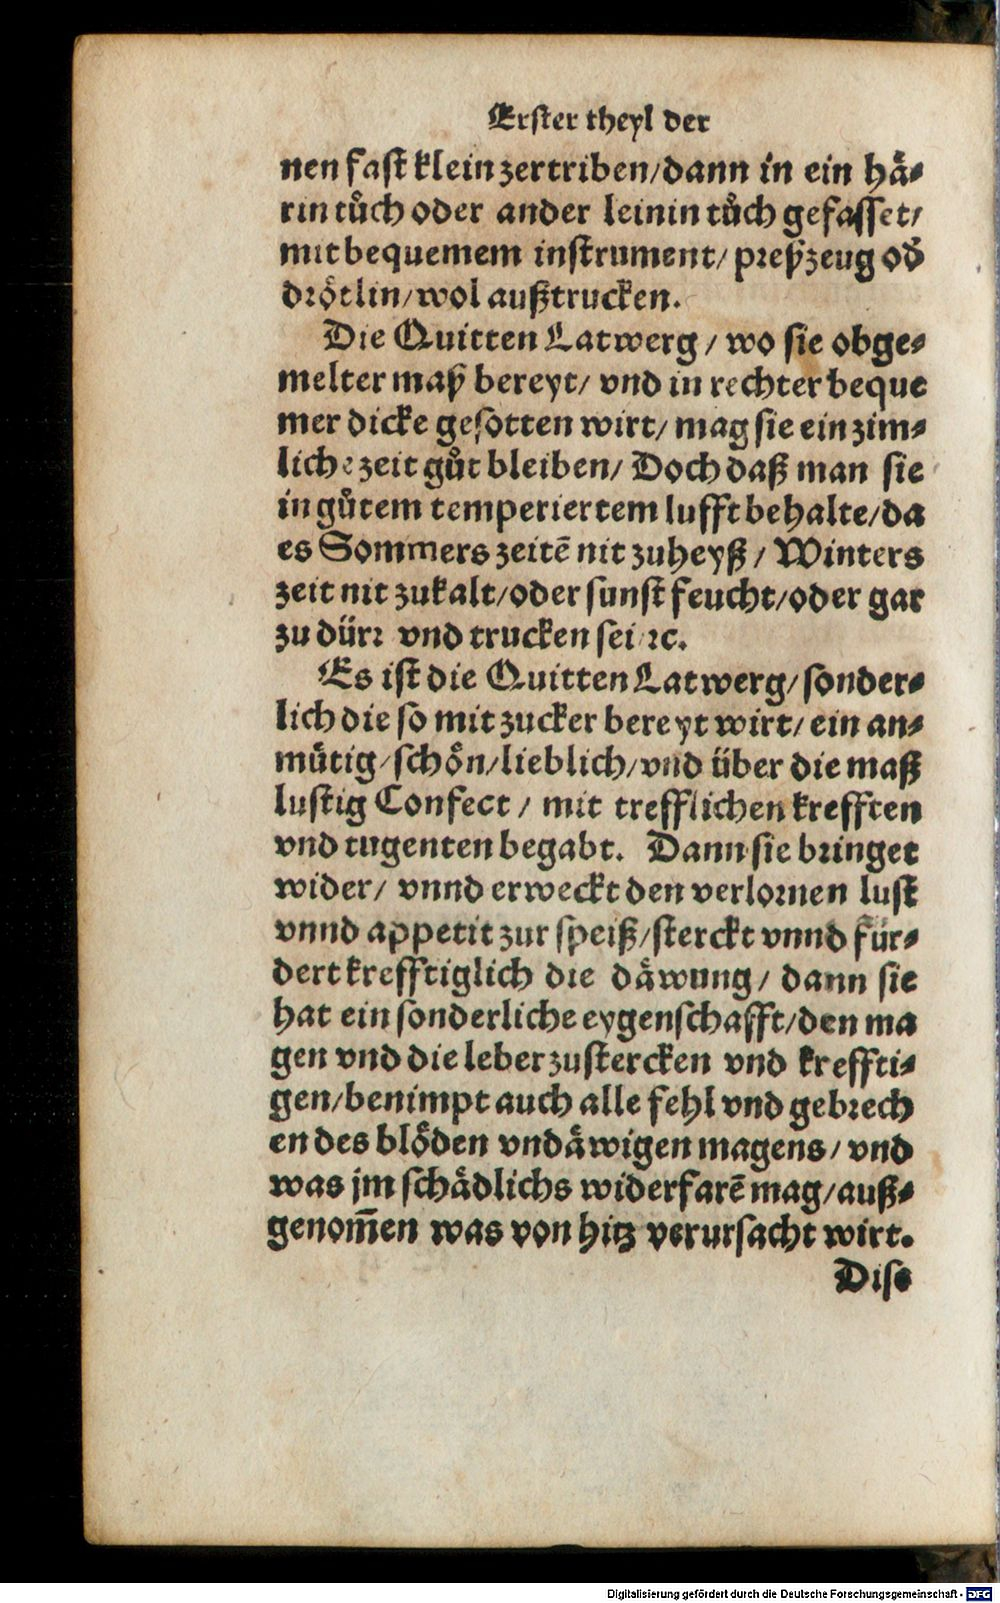 Erster theyl der
nen fast klein zertriben/dann in ein hå⸗
rin tůch oder ander leinin tůch gefasset/
mit bequemem instrument/ preÿzeug oď
drötlin/wol außtrucken.
Die Quitten Latwerg / wo sie obge⸗
melter maÿ bereyt/ vnd in rechter beque
mer dicke gesotten wirt/ mag sie ein zim⸗
liche zeit gůt bleiben/ Doch daß man sie
in gůtem temperiertem lufft behalte/da
es Sommers zeitē nit zuheyß / Winters
zeit nit zukalt/oder sunst feucht/oder gar
zu dürr vnd trucken sei ꝛc.
Es ist die Quitten Latwerg/sonder⸗
lich die so mit zucker bereyt wirt/ ein an⸗
mütig/schön/lieblich/vnd über die maß
lustig Confect / mit trefflichen krefften
vnd tugenten begabt. Dann sie bringet
wider/ vnnd erweckt den verlornen lust
vnnd appetit zur speiß/sterckt vnnd für⸗
dert krefftiglich die däwung/ dann sie
hat ein sonderliche eygenschafft/den ma
gen vnd die leber zustercken vnd kreffti⸗
gen/benimpt auch alle fehl vnd gebrech
en des blöden vndäwigen magens/ vnd
was jm schädlichs widerfarē mag/auß⸗
genom̄en was von hitz verursacht wirt.
Dise
Digitalisierung gefördert durch die Deutsche Forschungsgemeinschaft - DFG